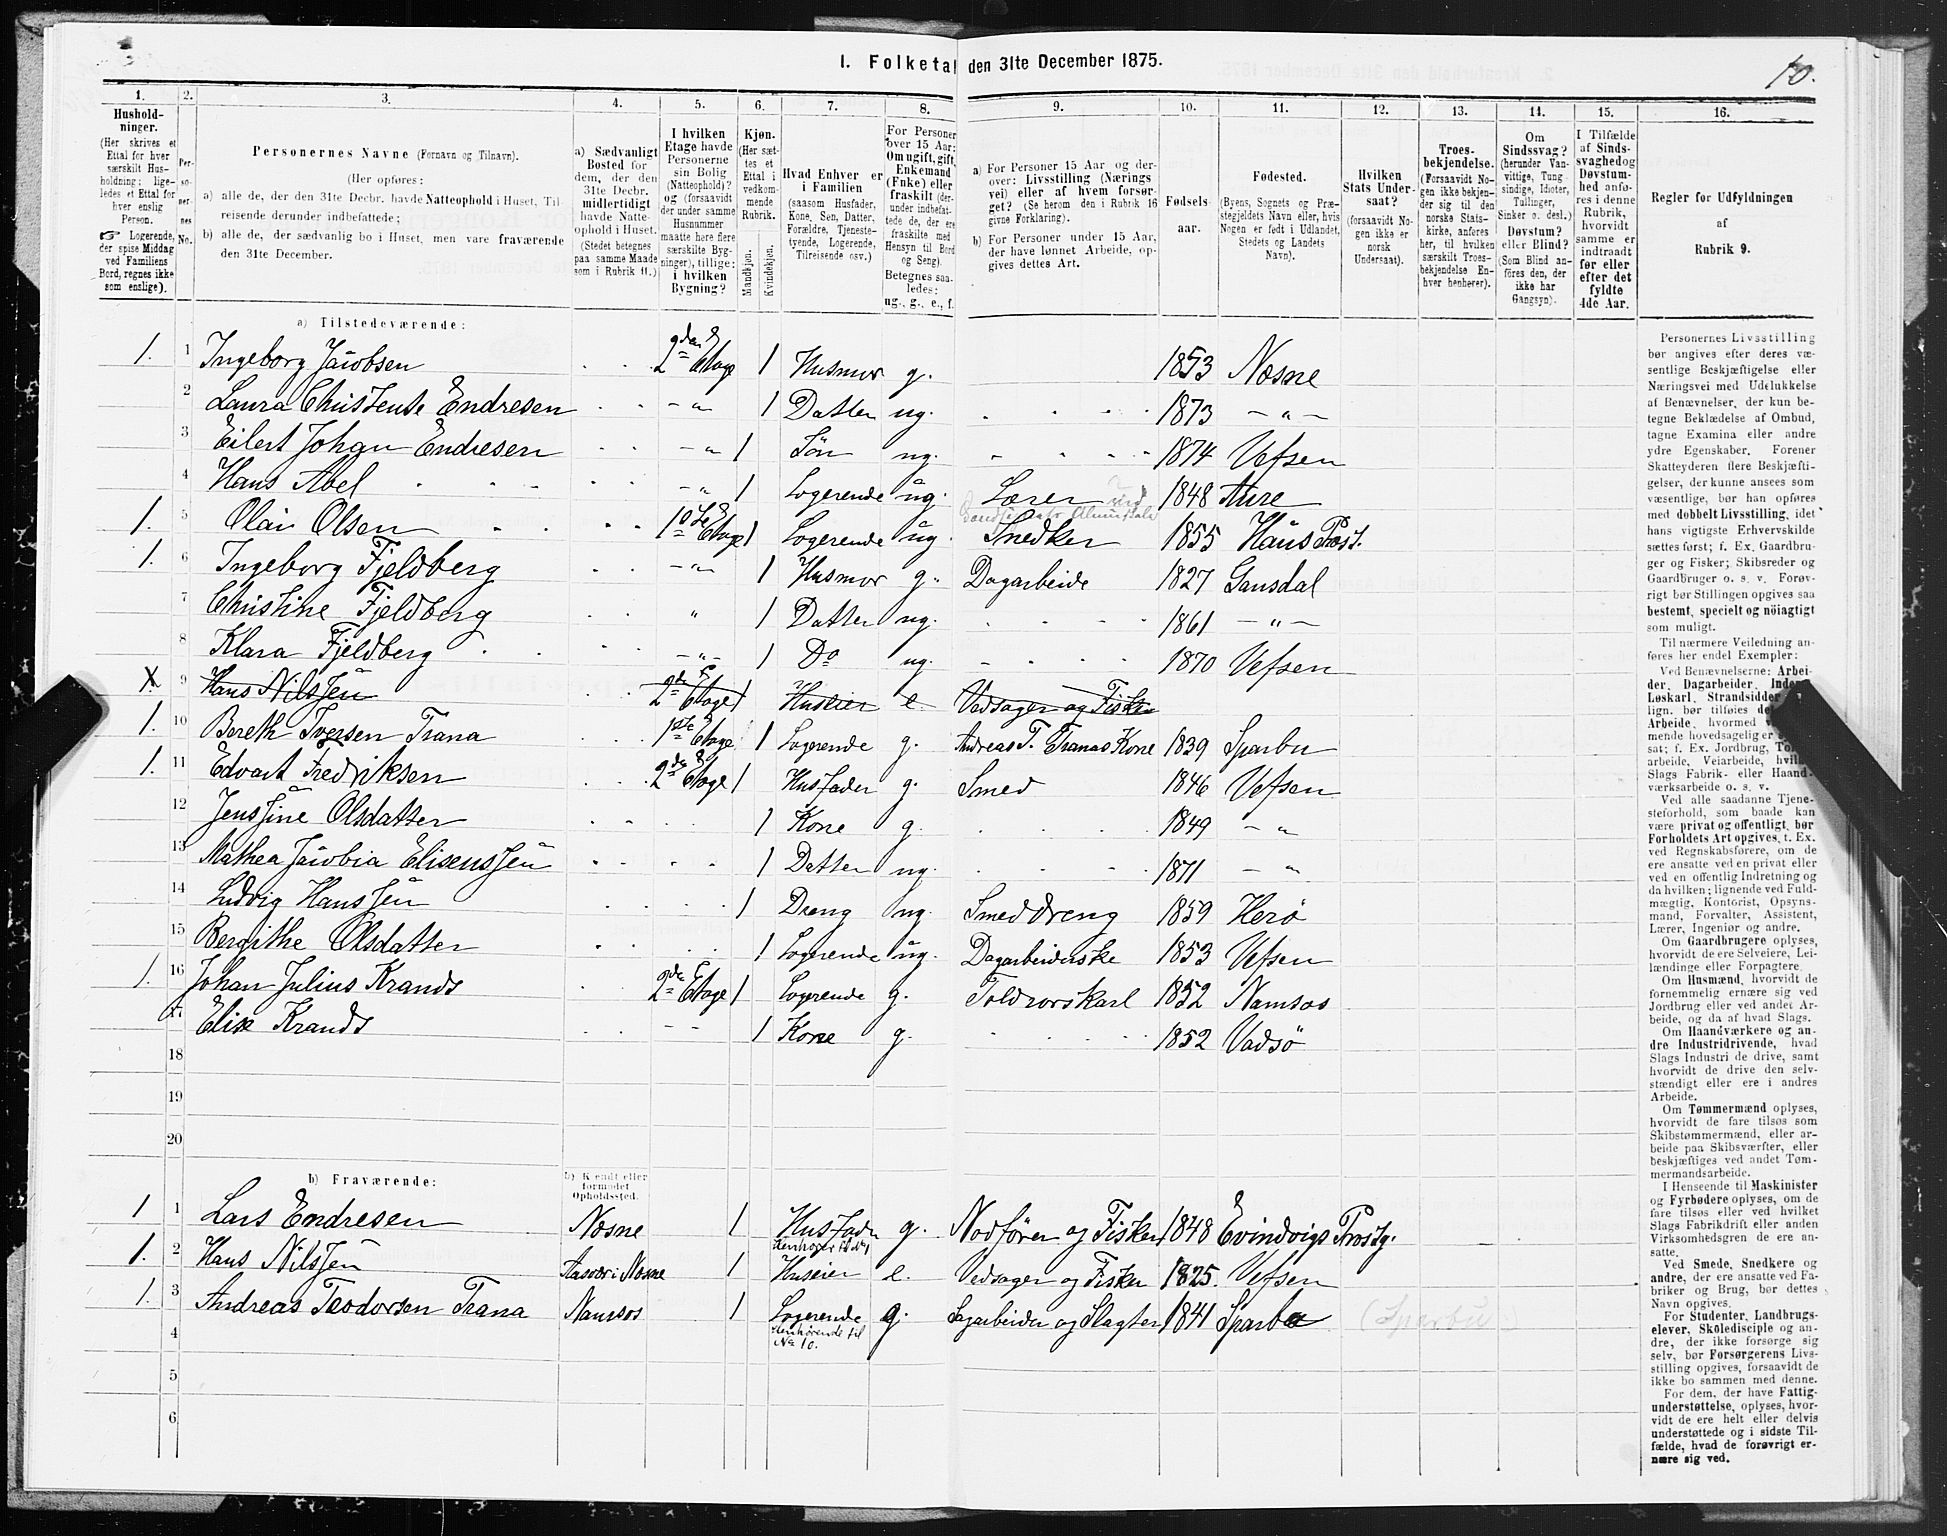 1. Folketal den 31te December 1875.
10.
1. 2. 3. 4. 5. 6. 7. 8. 9. 10. 11. 12. 13. 14. 15. 16.
Personernes Navne (Fornavn og Tilnavn).
(Her opføres:
a) alle de, der den 31te Decbr. havde Natteophold i Huset, Til-
reisende derunder indbefattede;
b) alle de, der sædvanlig bo i Huset, men vare fraværende
den 31te December.
Hushold-
ninger.
(Her skrives et
Ettal for hver
særskilt Hus-
holdning; lige-
ledes et Ettal for
hver enslig
Person.
☞ Logerende,
der spise Middag
ved Familiens
Bord, regnes ikke
som enslige).
Per-
so-
ner-
nes
No.
a) Sædvanligt
Bosted for
dem, der den
31te Decbr.
midlertidigt
havde Natte-
ophold i Huset.
(Stedet betegnes
paa samme Maade
som i Rubrik 11.)
I hvilken
Etage havde
Personerne
sin Bolig
(Natteophold)?
og (forsaavidt
der under samme
Husnummer
maatte høre flere
særskilte Byg-
ninger), tillige:
i hvilken
Bygning?
Kjøn.
(Her sæt-
tes et
Ettal i
vedkom-
mende
Rubrik.
Mandkjøn.
Kvindekjøn.
Hvad Enhver er
i Familien
(saasom Husfader,
Kone, Søn, Datter,
Forældre, Tjeneste-
tyende, Logerende,
Tilreisende osv.)
For Personer
over 15 Aar:
Om ugift, gift,
Enkemand
(Enke) eller
fraskilt (der-
under indbefat-
tede de, der ere
fraskilte med
Hensyn til Bord
og Seng)
Betegnes saa-
ledes:
ug., g., e., f.
a) For Personer 15 Aar og der-
over: Livsstilling (Nærings
vei) eller af hvem forsør-
get? (Se herom den i Rubrik 16
givne Forklaring).
b) For Personer under 15 Aar,
der have lønnet Arbeide, op-
gives dettes Art.
Fødsels-
aar.
Fødested.
(Byens, Sognets og Præ-
stegjeldets Navn eller, hvis
Nogen er født i Udlandet,
Stedets og Landets
Navn).
Hvilken
Stats Under-
saat?
(forsaavidt No-
gen ikke er
norsk
Undersaat).
Troes-
bekjendelse.
(Forsaavidt No-
gen ikke bekjen-
der sig til den
norske Stats-
kirke, anføres
her, til hvilken
særskilt Troes-
bekjendelse En-
hver henhører).
Om
Sindssvag?
(herunder Van-
vittige, Tung
sindige, Idioter,
Tullinger,
Sinker o. desl.)
Døvstum?
eller Blind?
(Som Blind an-
føres den, der
ikke har
Gangsyn).
I Tilfælde
af Sinds-
svaghed og
Døvstum-
hed anfø-
res i denne
Rubrik,
hvorvidt
samme er
indtraadt
før eller
efter det
fyldte
4de Aar.
Regler for Udfyldningen
af
Rubrik 9.
a) Tilstedeværende:
1. 1 Ingeborg Jacobsen 2den Etage 1 Husmor g. 1853 Nesne
2 Laura Christense Endresen - " - 1 Datter ug. 1873 - " -
3 Eilert Johan Endresen - " 1 Søn ug. 1874 Vefsen
4 Hans Abel - " - 1 Logerende ug. Lærer ved 1848 Aure
1. 5 Olai Olsen 1ste Etage 1 Logerende ug. Snedker 1855 Haus Præst.
1. 6 Ingeborg Fjeldberg - " - 1 Husmor g. Dagarbeide 1827
7 Christine Fjeldberg " 1 Datter ug. 1861 - " -
8 Klara Fjeldberg - " - 1 Do ug. 1870 Vefsen
9 Hans Nilssen 2den Etage 1 Huseier e. Vedsager og Fisker
1. 10 Bereth Iversen Trana 1ste Etage 1 Logerende g. Andreas T. Tranas Kone 1839 Sparbu
1. 11 Edvart Fredriksen 2den Etage 1 Husfader g. Smed 1846 Vefsen
12 Jenssine Olsdatter 1 Kone g. 1849 - "
13 Mathea Jacobia Elisenssen 1 Datter ug. 1871 - "
14 Ludvig Hanssen 1 Dreng ug. Smeddreng 1859 Herö
15 Bergithe Olsdatter 1 Logerende ug. Dagarbeiderske 1853 Vefsen
1. 16 Johan Julius Krands 2den Etage 1 Logerende g. Toldrorskarl 1852 Namsos
17 Elise Krands - - 1 Kone g. 1852 Vadsö
18
19
20
b) Fraværende:
b) Kjendt eller
formodet
Opholdssted.
1 1 Lars Endresen Nesne 1 Husfader g. Nodfører og Fisker 1848 Evindvigs Prestg.
1. 2 Hans Nilssen Aasvær i Nesne 1 Huseier e. Vedsager og Fisker 1825. Vefsen
1. 3 Andreas Teodorsen Trana Namsos 1 Logerende g. Sagarbeider og Slagter 1841 Sparbo (Sparbu
Henhörende til
No 10.
4
5
6
Personernes Livsstilling
bør angives efter deres væ-
sentlige Beskjæftigelse eller
Næringsvei med Udelukkelse
af Benævnelser, der kun be-
tegne Beklædelse af Ombud,
tagne Examina eller andre
ydre Egenskaber. Forener
Skatteyderen flere Beskjæfti-
gelser, der kunne ansees som
væsentlige, bør han opføres
med dobbelt Livsstilling, idet
hans vigtigste Erhvervskilde
sættes først; f. Ex. Gaardbru-
ger og Fisker; Skibsreder og
Gaardbruger o. s. v. Forøv-
rigt bør Stillingen opgives saa
bestemt, specielt og nöiagtigt
som muligt.
Til nærmere Veiledning an-
føres her endel Exempler:
Ved Benævnelserne: Arbei-
der, Dagarbeider, Inder-
Løskarl, Strandsidder
lign. bør tilføies
Arbeide, hvormed
mende hovedsagelig er
sat; f. Ex. Jordbrug,
arbeide, Veiarbeide,
Slags Fabrik- eller Haand-
værksarbeide o. s. v.
Ved alle saadanne Tjene-
steforhold, som baade kan
være privat og offentligt, bør
Forholdets Art opgives, t. Ex.
ved Regnskabsførere, om de
ere ansatte ved en privat eller
ved en offentlig Indretning og
da hvilken; lignende ved Fuld-
mægtig, Kontorist, Opsyns-
mand, Forvalter, Assistent,
Lærer, Ingeniør og andre.
Om Gaardbrugere oplyses,
hvorvidt de ere Selveiere, Lei-
lændinge eller Forpagtere.
Om Husmænd, hvorvidt de
fornemmelig ernære sig ved
Jordbrug eller ved andet Ar-
beide, og da af hvad Slags.
Om Haandværkere og an-
dre Industridrivende, hvad
Slags Industri de drive, samt
hvorvidt de drive den selv-
stændigt eller ere i andres
Arbeide.
Om Tømmermænd oplyses,
hvorvidt de fare tilsøs som
Skibstømmermænd, eller ar-
beide paa Skibsværfter, eller
beskjæftiges ved andet Tøm-
mermandsarbeide.
I Henseende til Maskinister
og Fyrbødere oplyses, om de
fare tilsøs eller ved hvilket
Slags Fabrikdrift eller anden
Virksomhedsgren de ere an-
satte.
Ved Smede, Snedkere og
andre, der ere ansatte ved Fa-
briker og Brug, bør dettes
Navn opgives.
For Studenter, Landbrugs-
elever, Skoledisciple og an-
dre, der ikke forsørge sig
selv, bør Forsørgerens Livs-
stilling opgives, forsaavidt de
ikke bo sammen med denne.
For dem, der have Fattig-
understøttelse, oplyses, hvor-
vidt de ere helt eller delvis
understøttede og i sidste Til-
fælde, hvad de forøvrigt er-
nære sig ved.